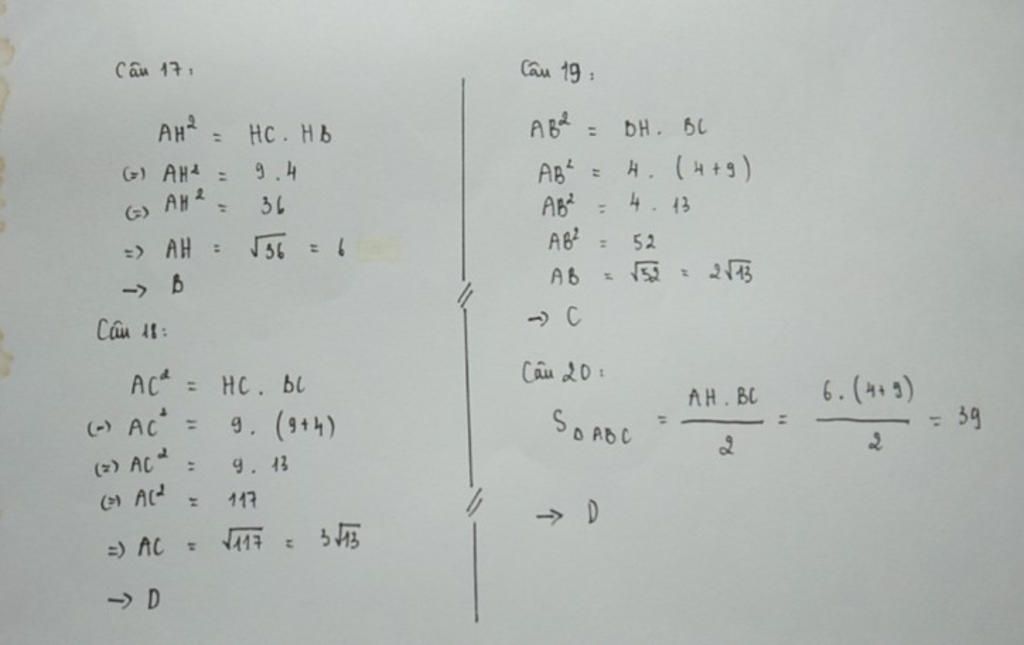 Câu 17:
AH² = HC . HB
(=) AH² = 9 . 4
(=) AH² = 36
=) AH = √36 = 6
→ B
Câu 18:
AC² = HC . BC
(=) AC² = 9 . (9+4)
(=) AC² = 9 . 13
(=) AC² = 117
=) AC = √117 = 3√13
→ D
Câu 19:
AB² = BH . BC
AB² = 4 . (4+9)
AB² = 4 . 13
AB² = 52
AB = √52 = 2√13
→ C
Câu 20:
S_{Δ ABC} = \frac{AH . BC}{2} = \frac{6 . (4+9)}{2} = 39
→ D